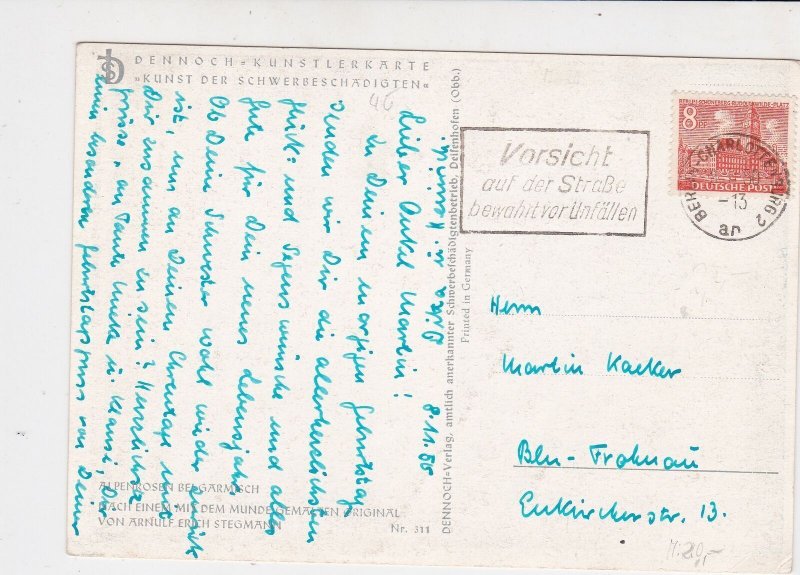 DENNOCH=KÜNSTLERKARTE
»KUNST DER SCHWERBESCHÄDIGTEN«
46
8.11.55
Lieber Onkel Martin!
Zu Deinem morgigen Geburtstag
senden wir Dir die allerherzlichsten
Glück- und Segenswünsche und alles
Gute für Dein neues Lebensjahr.
Ob Deine Schwester wohl wieder
ist, um an Deinem Ehrentage mit
Dir zusammen zu sein? Herzlichste
Grüsse, an Tante u. Klausi, Dir
einen besonderen Geburtstagskuss von Deiner
ALPENROSEN BEI GARMISCH
NACH EINEM MIT DEM MUNDE GEMALTEN ORIGINAL
VON ARNULF ERICH STEGMANN
Nr. 311
DENNOCH=Verlag, amtlich anerkannter Schwerbeschädigtenbetrieb, Deisenhofen (Obb.)
Printed in Germany
Vorsicht
auf der Straße
bewahrt vor Unfällen
BERLIN-CHARLOTTENBURG 2
-13
an
BERLIN-SCHÖNEBERG RUDOLF-WILDE-PLATZ
8
DEUTSCHE POST
Herrn
Martin Kaeker
Bln-Frohnau
Enkircherstr. 13.